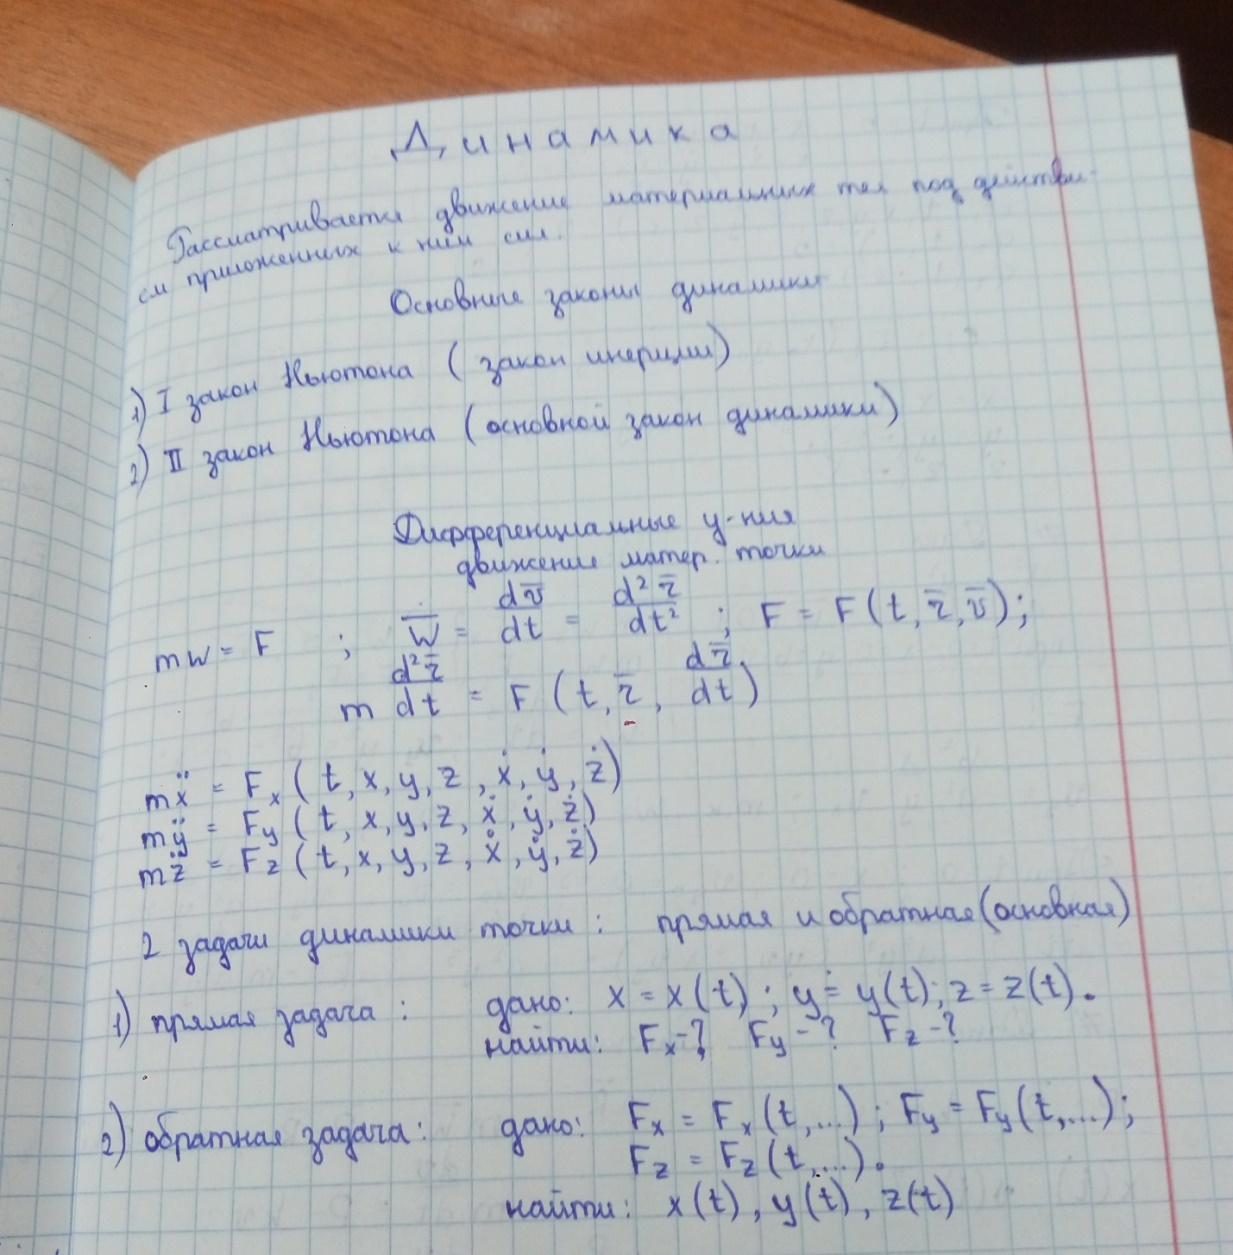 Динамика
Рассматривается движение материальных тел под действи-
ем приложенных к ним сил.
Основные законы динамики
1) I закон Ньютона (закон инерции)
2) II закон Ньютона (основной закон динамики)
Дифференциальные у-ния
движение матер. точки
mw = F ; w̅ = dv̅/dt = d²r̅/dt² ; F = F(t, r̅, v̅);
m d²r̅/dt = F (t, r̅, dr̅/dt)
mẍ = Fₓ(t, x, y, z, ẋ, ẏ, ż)
mÿ = Fy(t, x, y, z, ẋ, ẏ, ż)
mz̈ = Fz(t, x, y, z, ẋ, ẏ, ż)
2 задачи динамики точки: прямая и обратная (основная)
1) прямая задача: дано: x = x(t); y = y(t); z = z(t).
найти: Fₓ-? Fy-? Fz-?
2) обратная задача: дано: Fₓ = Fₓ(t,...); Fy = Fy(t,...);
Fz = Fz(t,...).
найти: x(t), y(t), z(t)